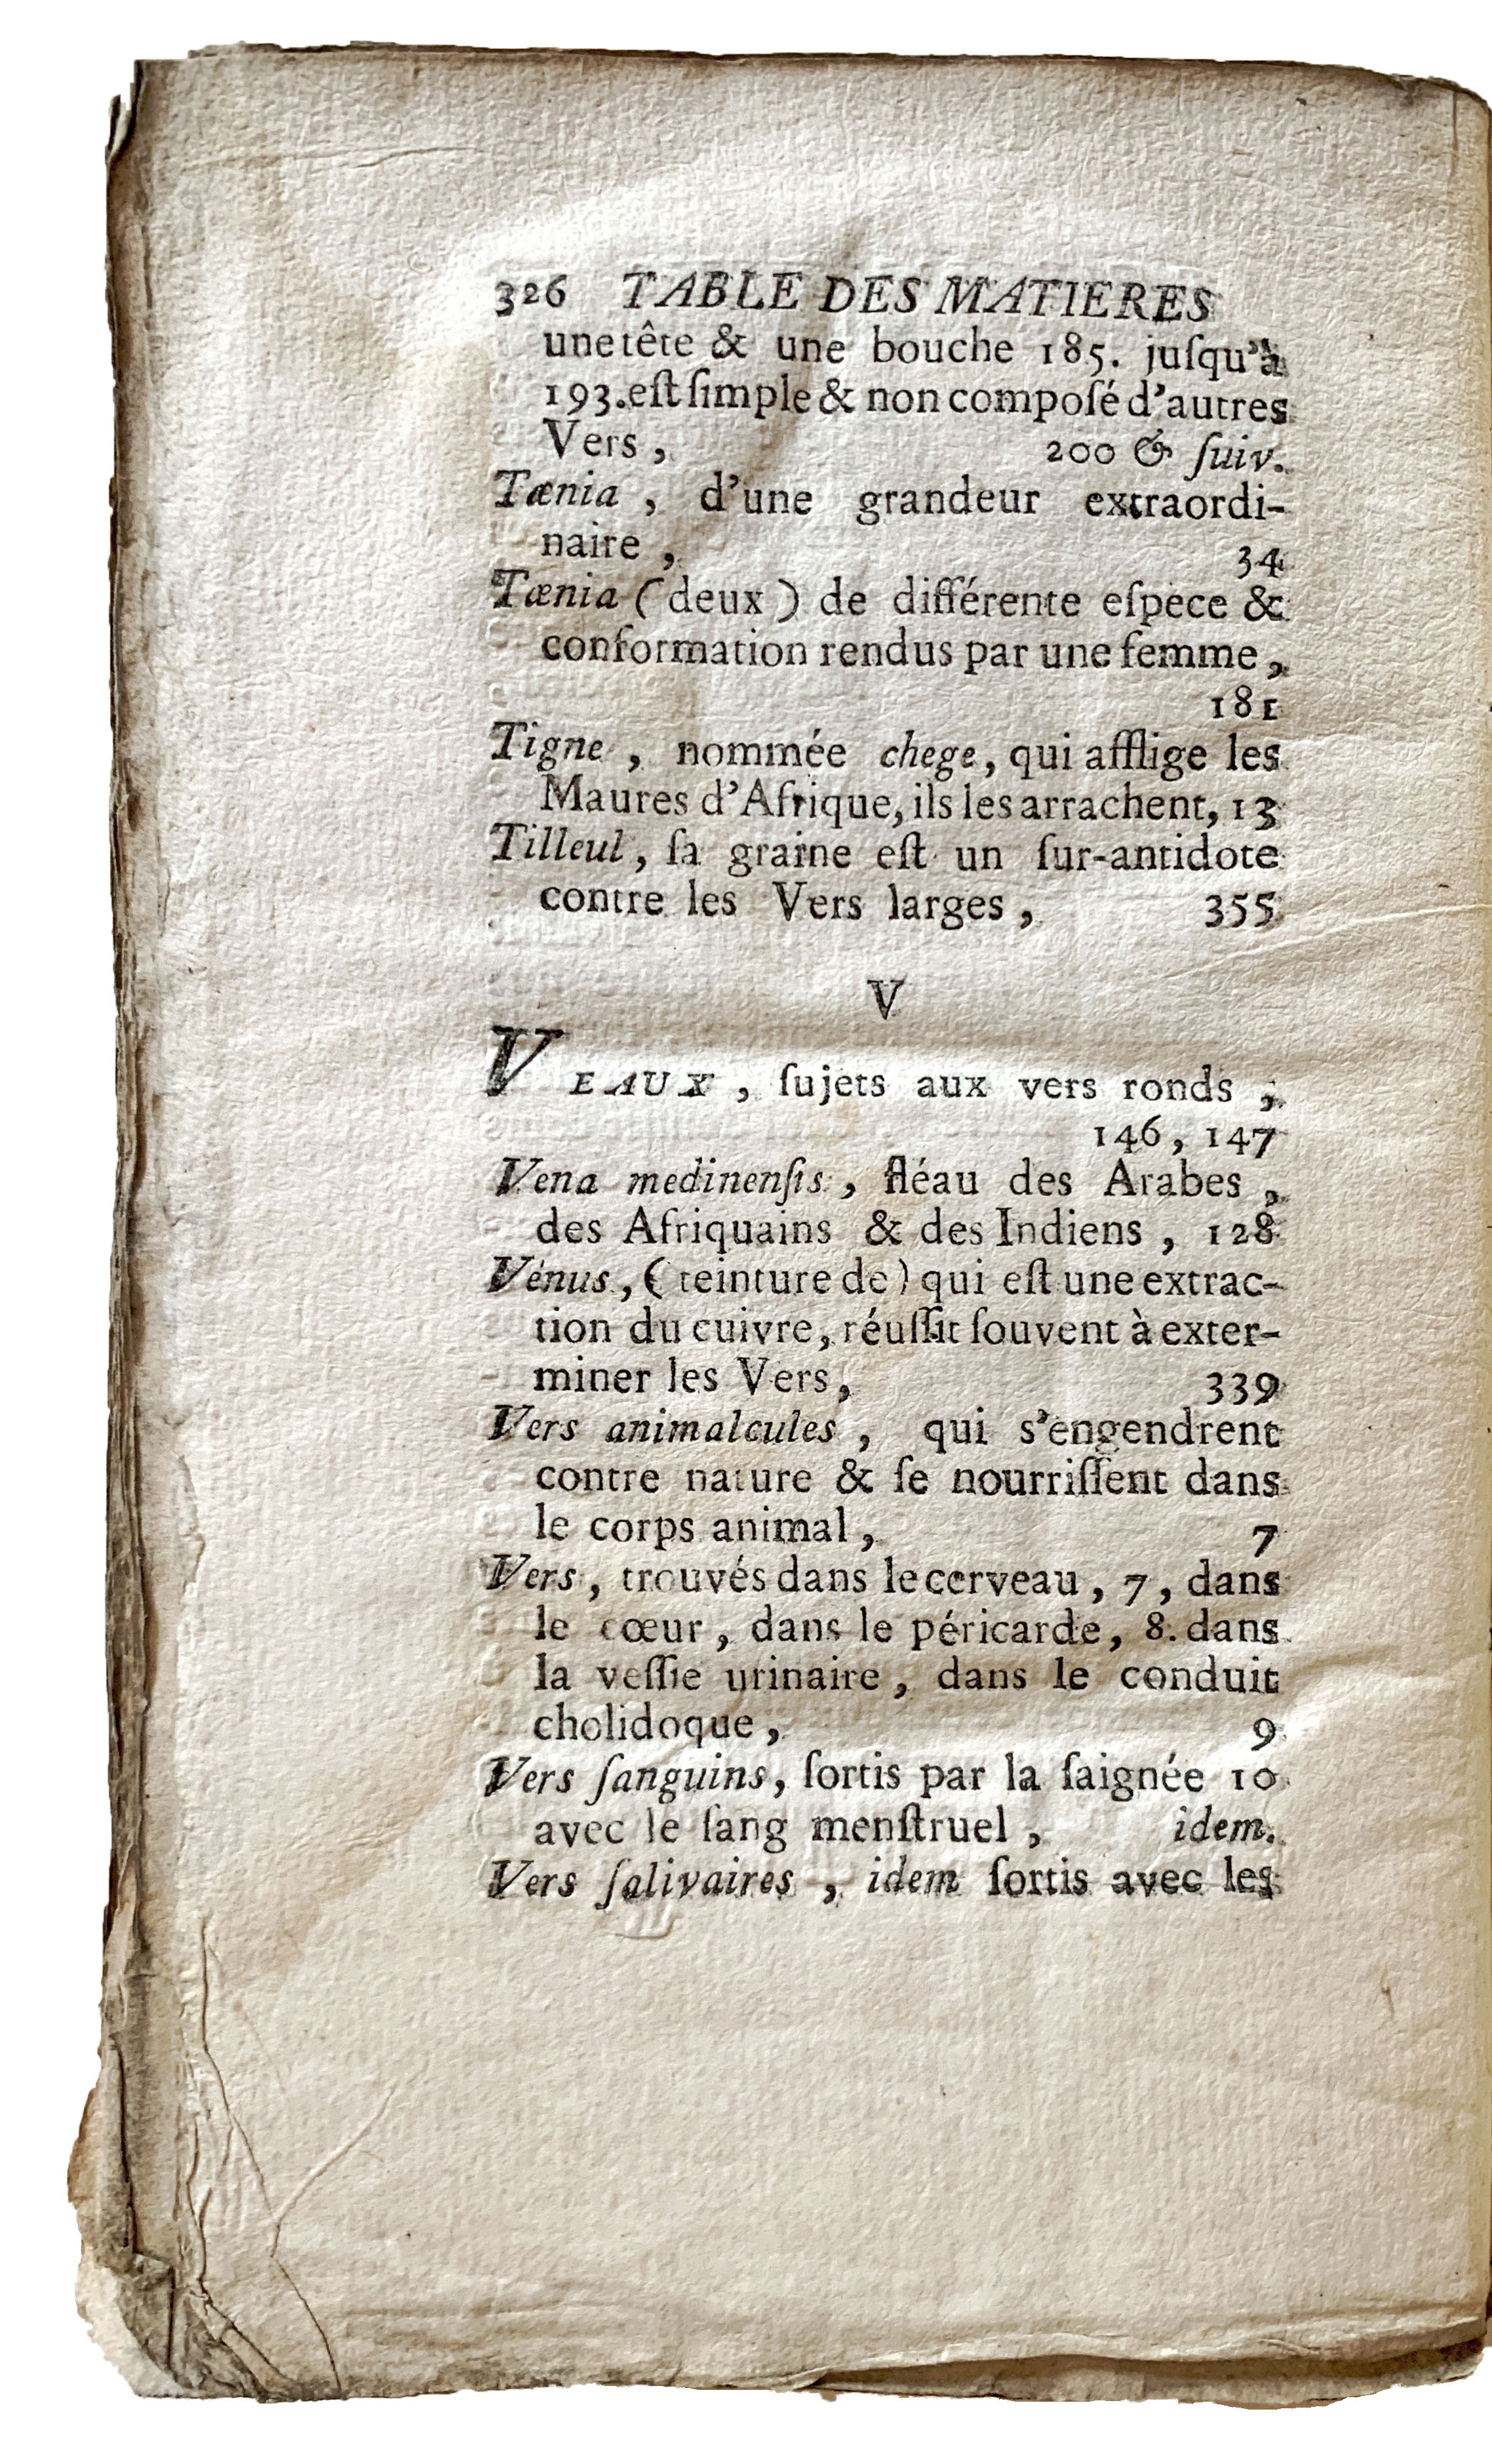 326 TABLE DES MATIERES
une tête & une bouche 185. juſqu'à
193. eſt ſimple & non compoſé d'autres
Vers, 200 & ſuiv.
Tænia, d'une grandeur extraordi-
naire, 34
Tænia (deux) de différente eſpece &
conformation rendus par une femme,
181
Tigne, nommée chege, qui afflige les
Maures d'Afrique, ils les arrachent, 13
Tilleul, ſa graine eſt un ſur-antidote
contre les Vers larges, 355
V
VEAUX, ſujets aux vers ronds,
146, 147
Vena medinenſis, fléau des Arabes,
des Afriquains & des Indiens, 128
Vénus, (teinture de) qui eſt une extrac-
tion du cuivre, réuſſit ſouvent à exter-
miner les Vers, 339
Vers animalcules, qui s'engendrent
contre nature & ſe nourriſſent dans
le corps animal, 7
Vers, trouvés dans le cerveau, 7, dans
le cœur, dans le péricarde, 8. dans
la veſſie urinaire, dans le conduit
cholidoque, 9
Vers ſanguins, ſortis par la ſaignée 10
avec le ſang menſtruel, idem.
Vers ſalivaires, idem ſortis avec les